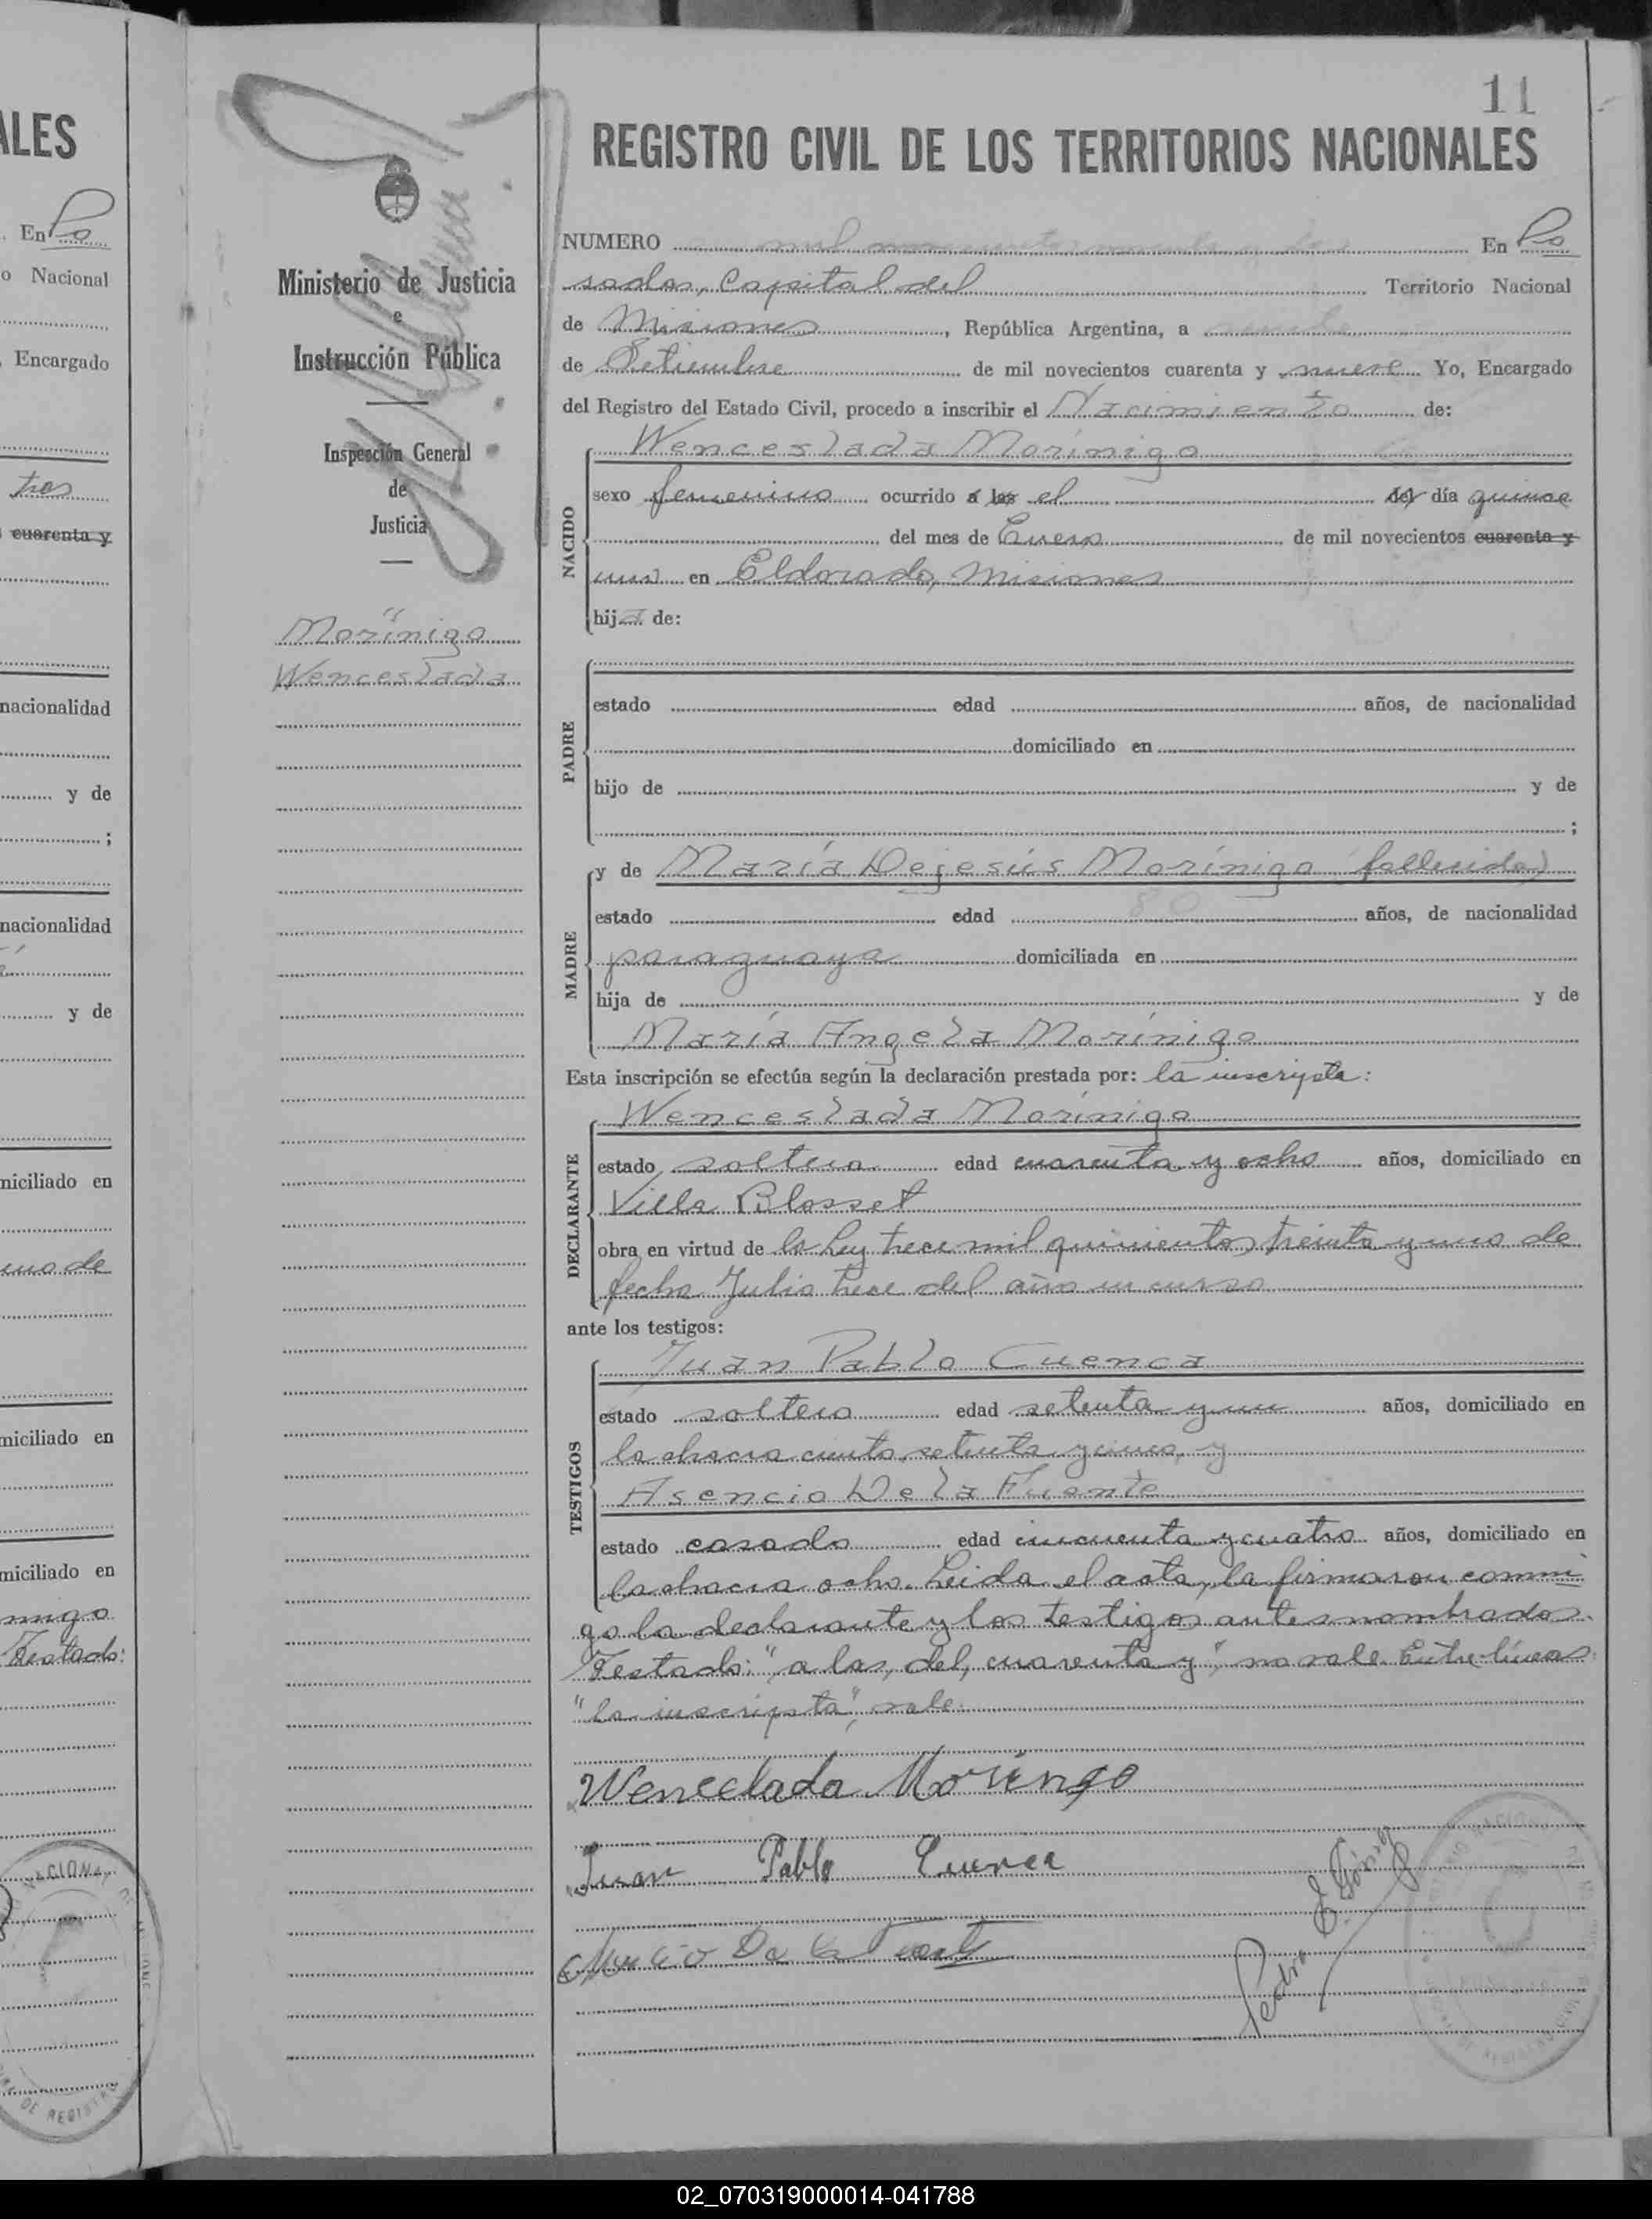 ALES
En Po
o Nacional
Encargado
tres
cuarenta y
nacionalidad
y de
;
nacionalidad
y de
niciliado en
uno de
niciliado en
niciliado en
Testado:
11
REGISTRO CIVIL DE LOS TERRITORIOS NACIONALES
Ministerio de Justicia
e
Instrucción Pública
Inspección General
de
Justicia
Morínigo
Wenceslada
NUMERO mil novecientos noventa y dos En Po
sadas, Capital del Territorio Nacional
de Misiones, República Argentina, a
de Setiembre de mil novecientos cuarenta y nueve Yo, Encargado
del Registro del Estado Civil, procedo a inscribir el Nacimiento de:
NACIDO
Wenceslada Morínigo
sexo femenino ocurrido a las el del día quince
del mes de Enero de mil novecientos cuarenta y
uno en Eldorado, Misiones
hija de:
PADRE
estado edad años, de nacionalidad
domiciliado en
hijo de y de
;
MADRE
y de María Dejesús Morínigo (fallecida)
estado edad años, de nacionalidad
paraguaya domiciliada en
hija de y de
María Angela Morínigo
Esta inscripción se efectúa según la declaración prestada por: la inscripta:
DECLARANTE
Wenceslada Morínigo
estado soltera edad cuarenta y ocho años, domiciliado en
Villa Blosset
obra en virtud de la Ley trece mil quinientos treinta y uno de
fecha Julio trece del año en curso
ante los testigos:
TESTIGOS
Juan Pablo Cuenca
estado soltero edad setenta y un años, domiciliado en
la chacra ciento setenta y cinco, y
Asencio De la Fuente
estado casado edad cincuenta y cuatro años, domiciliado en
la chacra ocho. Leida el acta, la firmaron conmi
go la declarante y los testigos antes nombrados.
Testado: "a las, del, cuarenta y", no vale. Entre-líneas:
"la inscripta", vale.
Wenceslada Morinigo
Juan Pablo Cuenca
Asencio De la Fuente
Pedro E. Gómez
02_070319000014-041788